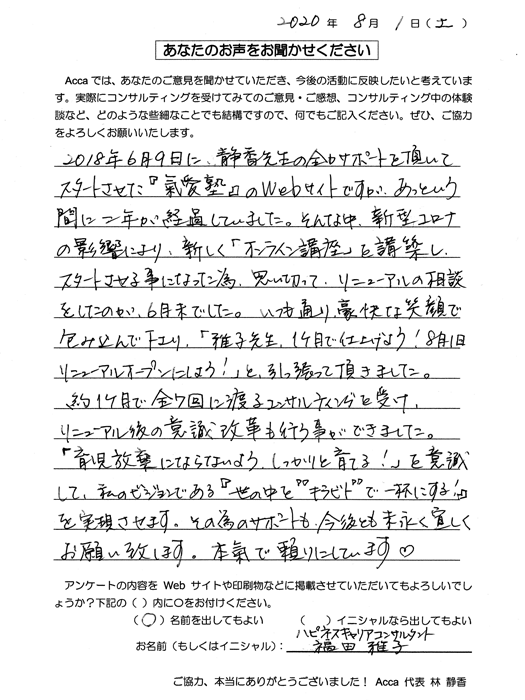 2020年 8月 1日(土)
あなたのお声をお聞かせください
Accaでは、あなたのご意見を聞かせていただき、今後の活動に反映したいと考えていま
す。実際にコンサルティングを受けてみてのご意見・ご感想、コンサルティング中の体験
談など、どのような些細なことでも結構ですので、何でもご記入ください。ぜひ、ご協力
をよろしくお願いいたします。
2018年6月9日に、静香先生の全力サポートを頂いて
スタートさせた『氣愛塾』のWebサイトですが、あっという
間に二年が経過していました。そんな中、新型コロナ
の影響により、新しく「オンライン講座」を構築し、
スタートさせる事になった為、思い切って、リニューアルの相談
をしたのが、6月末でした。いつも通り、豪快な笑顔で
包み込んで下さり、「雅子先生、1ヶ月で仕上げよう!8月1日
リニューアルオープンにしよう!」と、引っ張って頂きました。
約1ヶ月で全7回に渡るコンサルティングを受け、
リニューアル後の意識改革も行う事ができました。
「育児放棄にならないよう、しっかりと育てる!」を意識
して、私のビジョンである『世の中を"キラビト"で一杯にする!』
を実現させます。その為のサポートも、今後とも末永く宜しく
お願い致します。本氣で頼りにしています♡
アンケートの内容を Web サイトや印刷物などに掲載させていただいてもよろしいでし
ょうか?下記の( )内に○をお付けください。
(○)名前を出してもよい ( )イニシャルなら出してもよい
ハピネスキャリアコンサルタント
お名前(もしくはイニシャル): 福田 雅子
ご協力、本当にありがとうございました! Acca 代表 林 静香